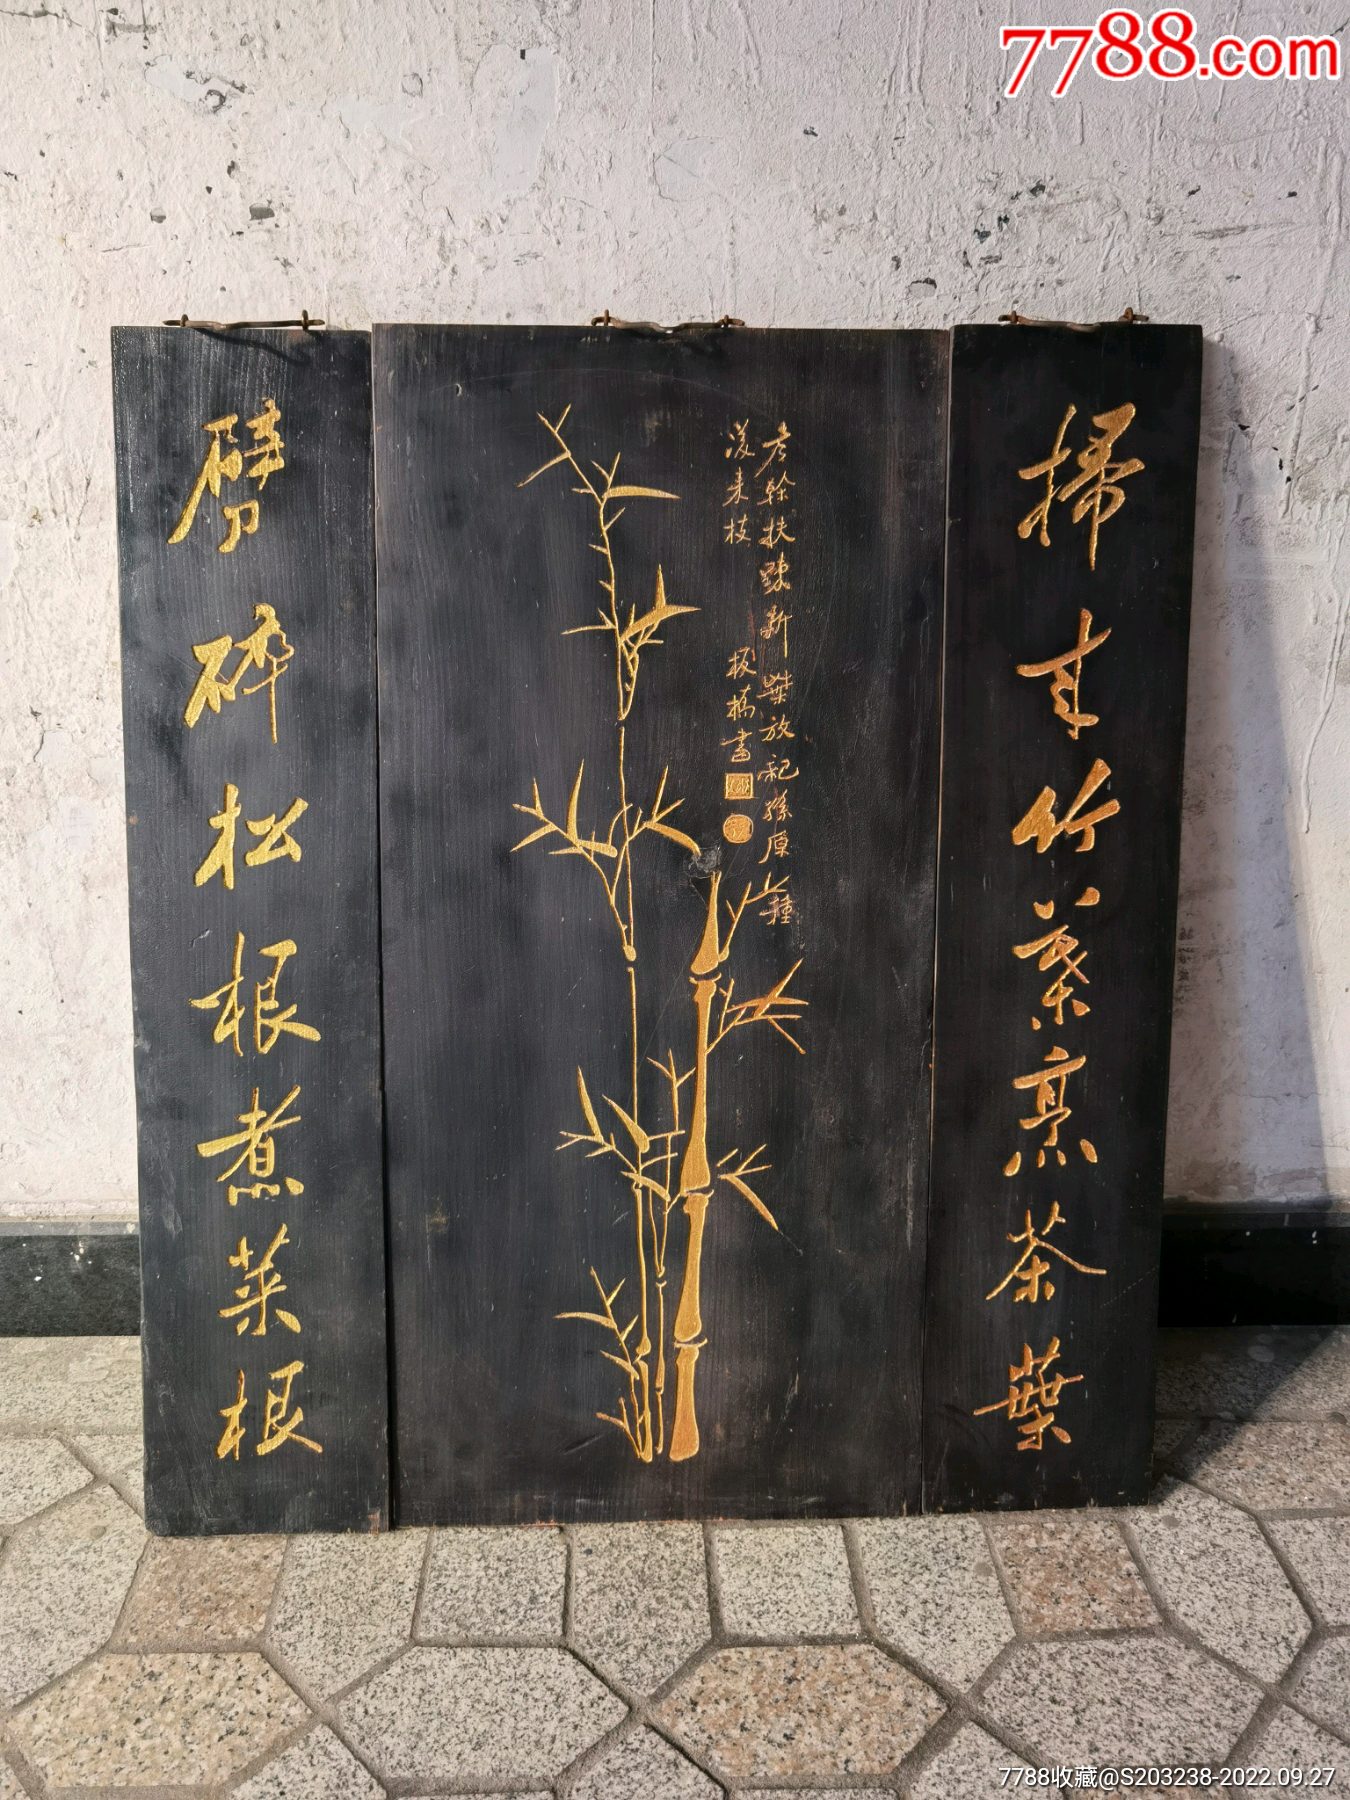 7788.com
掃来竹葉烹茶葉
老幹扶疎新
放
孫原
種
後来枝
板橋書
劈碎松根煮菜根
7788收藏@S203238-2022.09.27